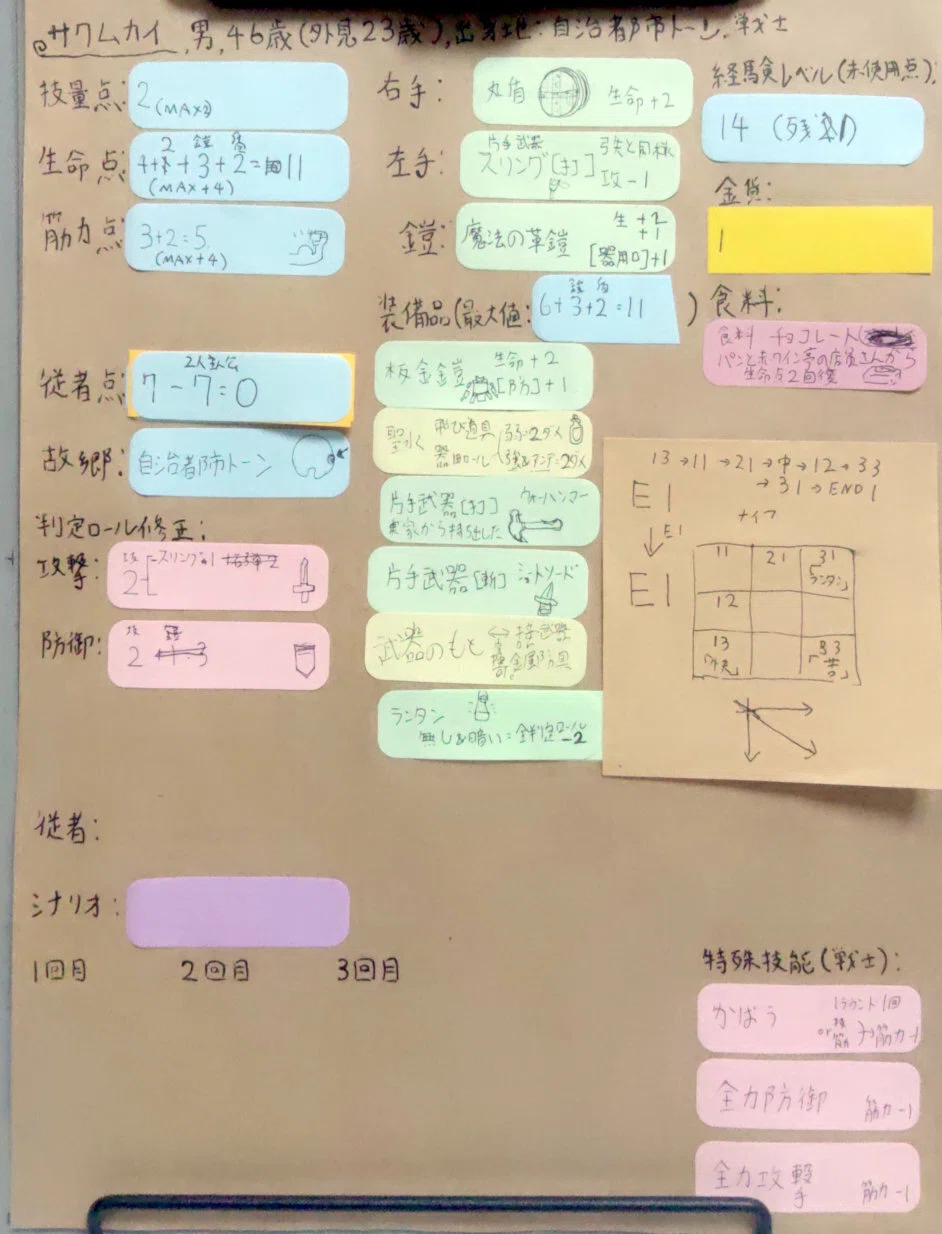 サクムカイ,男,46歳(外見23歳),出身地:自治都市トーン,戦士
技量点:
2(MAX2)
生命点:
2 鎧 盾
+3+2=11
(MAX+4)
筋力点:
3+2=5
(MAX+4)
従者点:
2人主人公
7-7=0
故郷:
自治都市トーン
判定ロール修正:
攻撃:
攻 スリング
2
防御:
2
従者:
シナリオ:
1回目 2回目 3回目
右手:
丸盾 生命+2
左手:
片手武器 弓矢と同様
スリング[打] 攻-1
鎧:
魔法の革鎧
生+2
+1
[器用ロ]+1
装備品(最大値:
6+3+2=11
)
板金鎧
生命+2
[防]+1
聖水
飛び道具
器用ロール
片手武器[打] ウォーハンマー
実家から持ち出した
片手武器[斬] ショートソード
武器のもと
ランタン
無し&暗い=全判定ロール-2
経験レベル(未使用点):
14
金貨:
1
食料:
食料 チョコレート
パンと赤ワイン亭の店員さんから
生命点2回復
13→11→21→中→12→33
→31→END1
E1
↓E1
E1
ナイフ
11 21 31
「ランタン」
12
13 33
特殊技能(戦士):
かばう
1ラウンド1回
筋力-1
全力防御 筋力-1
全力攻撃 筋力-1